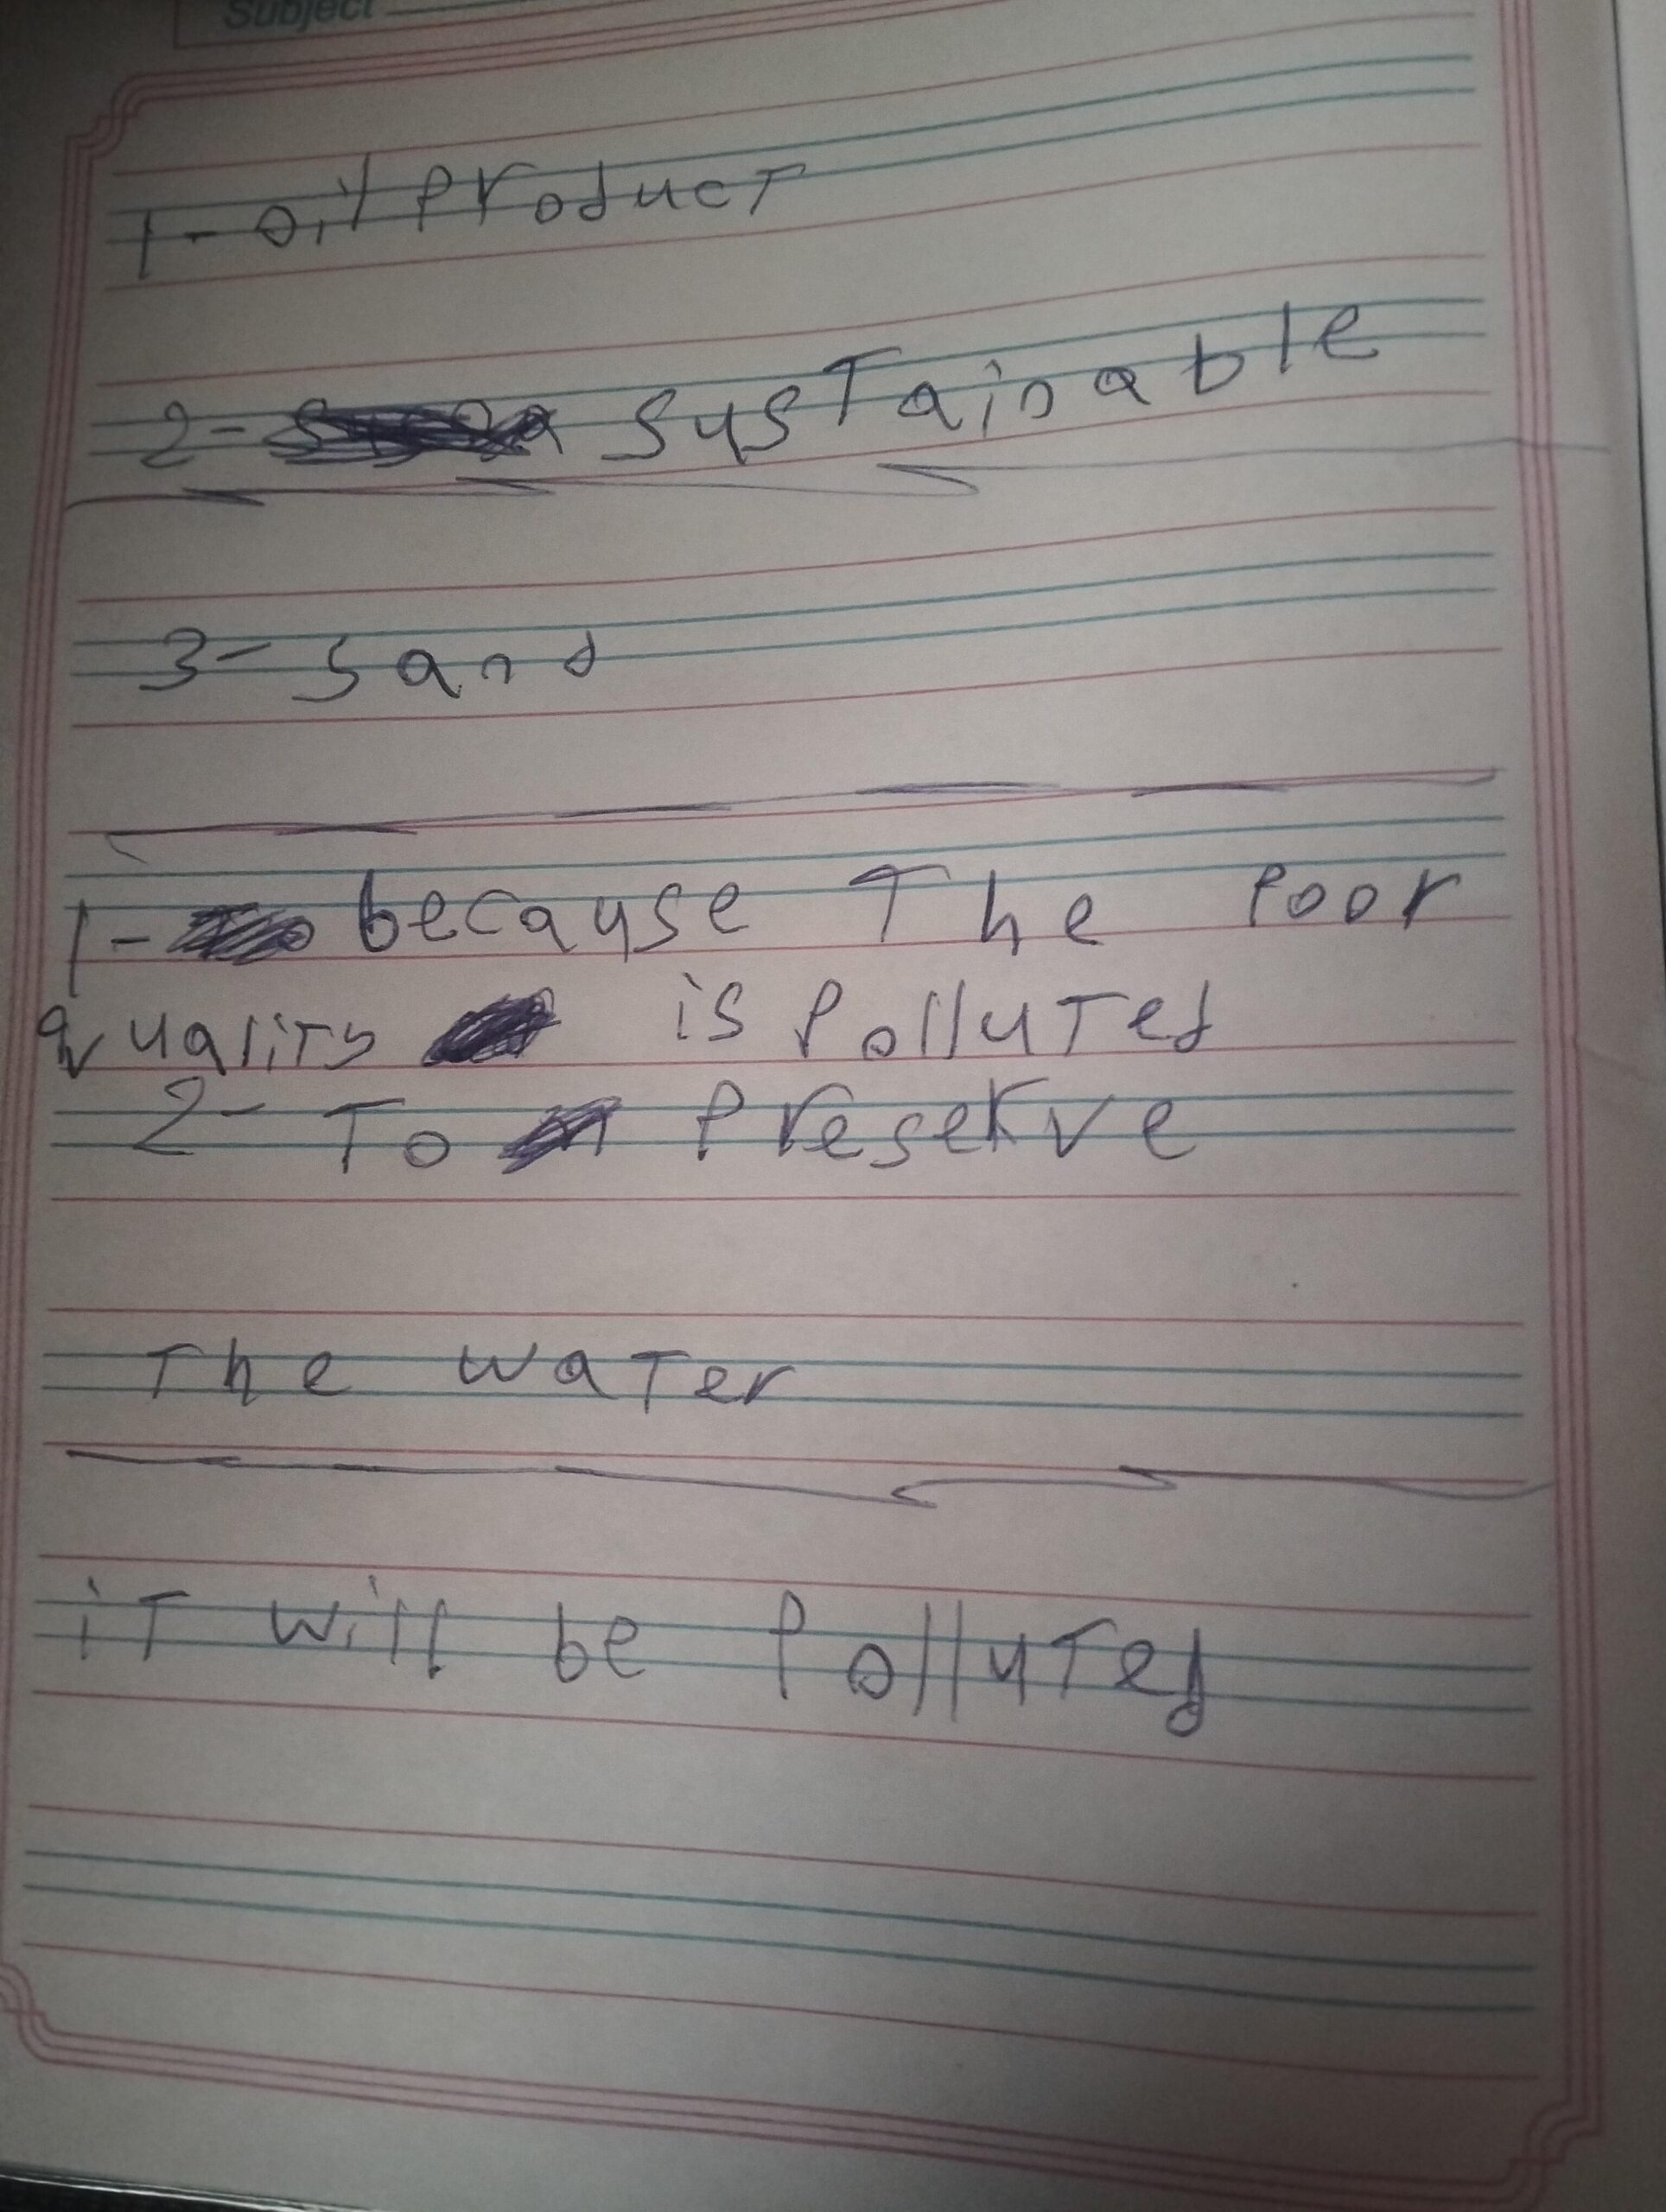 Subject
1- oil Product
2- sustainable
3- sand
1- because The Poor
quality is Polluted
2- To Preserve
The water
iT will be Polluted